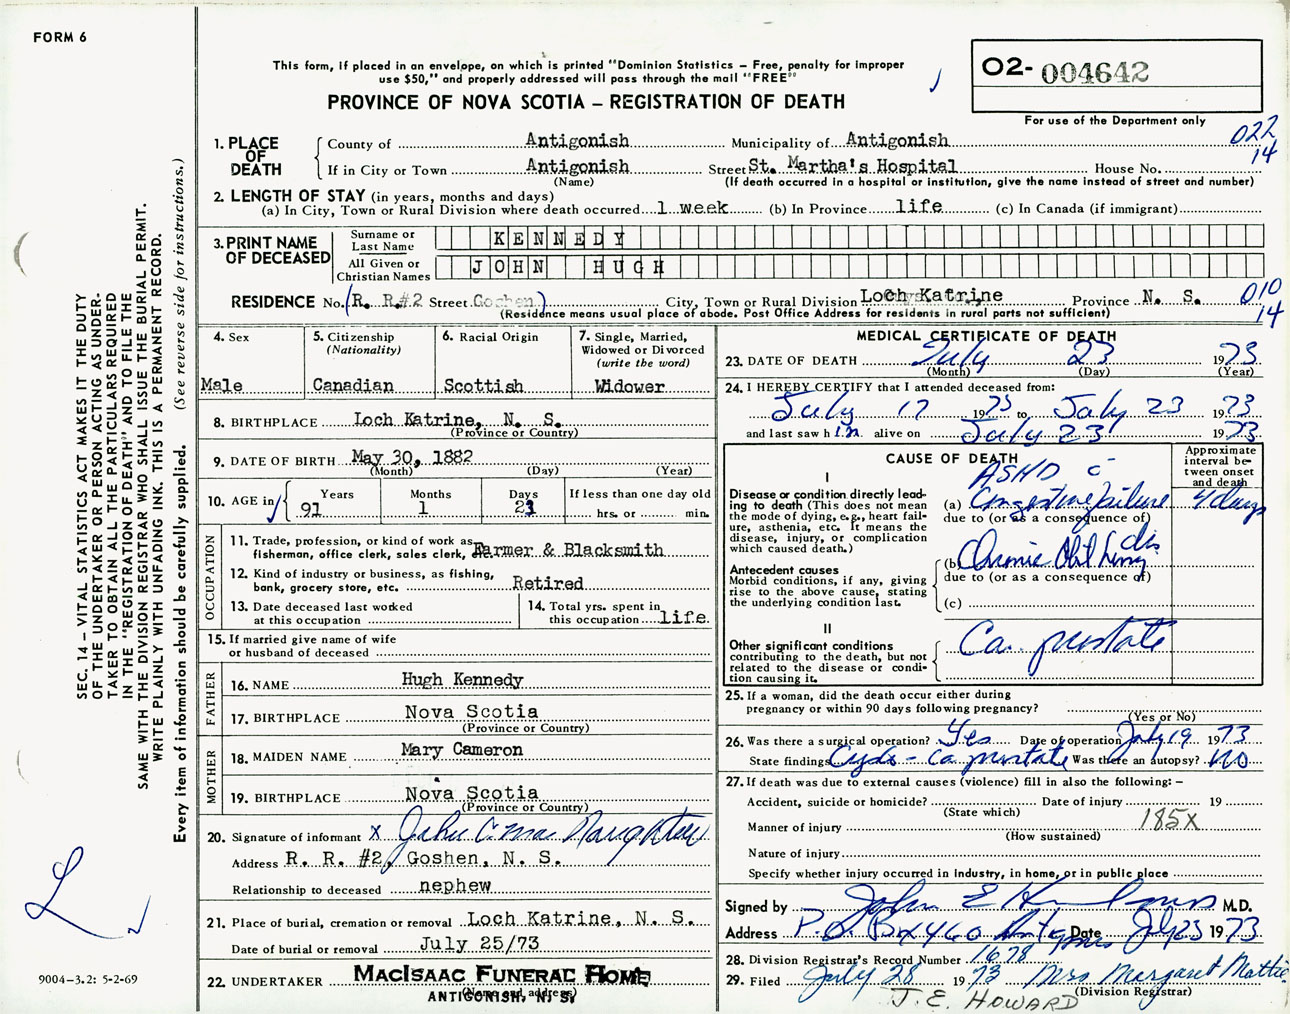 FORM 6
This form, if placed in an envelope, on which is printed "Dominion Statistics – Free, penalty for improper
use $50," and properly addressed will pass through the mail "FREE"
PROVINCE OF NOVA SCOTIA – REGISTRATION OF DEATH
O2- 004642
For use of the Department only
022
14
1. PLACE OF DEATH
County of Antigonish Municipality of Antigonish
If in City or Town Antigonish Street St. Martha's Hospital House No.
(Name) (If death occurred in a hospital or institution, give the name instead of street and number)
2. LENGTH OF STAY (in years, months and days)
(a) In City, Town or Rural Division where death occurred 1 week (b) In Province life (c) In Canada (if immigrant)
3. PRINT NAME OF DECEASED
Surname or Last Name KENNEDY
All Given or Christian Names JOHN HUGH
RESIDENCE No. (R. R.#2 Street Goshen) City, Town or Rural Division Loch Katrine Province N. S.
010
14
(Residence means usual place of abode. Post Office Address for residents in rural parts not sufficient)
4. Sex
Male
5. Citizenship
(Nationality)
Canadian
6. Racial Origin
Scottish
7. Single, Married,
Widowed or Divorced
(write the word)
Widower
8. BIRTHPLACE Loch Katrine, N. S.
(Province or Country)
9. DATE OF BIRTH May 30, 1882
(Month) (Day) (Year)
10. AGE in
Years Months Days If less than one day old
91 1 23 hrs. or min.
OCCUPATION
11. Trade, profession, or kind of work as
fisherman, office clerk, sales clerk, etc. Farmer & Blacksmith
12. Kind of industry or business, as fishing,
bank, grocery store, etc. Retired
13. Date deceased last worked
at this occupation
14. Total yrs. spent in
this occupation life
15. If married give name of wife
or husband of deceased
FATHER
16. NAME Hugh Kennedy
17. BIRTHPLACE Nova Scotia
(Province or Country)
MOTHER
18. MAIDEN NAME Mary Cameron
19. BIRTHPLACE Nova Scotia
(Province or Country)
20. Signature of informant x John C. MacNaughton
Address R. R. #2, Goshen, N. S.
Relationship to deceased nephew
21. Place of burial, cremation or removal Loch Katrine, N. S.
Date of burial or removal July 25/73
22. UNDERTAKER MACISAAC FUNERAL HOME
(Name and address)
ANTIGONISH, N. S.
MEDICAL CERTIFICATE OF DEATH
23. DATE OF DEATH July 23 1973
(Month) (Day) (Year)
24. I HEREBY CERTIFY that I attended deceased from:
July 17 1973 to July 23 1973
and last saw him alive on July 23 1973
CAUSE OF DEATH
Approximate
interval be-
tween onset
and death
I
Disease or condition directly lead-
ing to death (This does not mean
the mode of dying, e.g., heart fail-
ure, asthenia, etc. It means the
disease, injury, or complication
which caused death.)
ASHD c̄
(a) Congestive failure 4 days
due to (or as a consequence of)
Antecedent causes
Morbid conditions, if any, giving
rise to the above cause, stating
the underlying condition last.
(b) Chronic Obst Lung dis
due to (or as a consequence of)
(c)
II
Other significant conditions
contributing to the death, but not
related to the disease or condi-
tion causing it.
Ca. prostate
25. If a woman, did the death occur either during
pregnancy or within 90 days following pregnancy?
(Yes or No)
26. Was there a surgical operation? Yes Date of operation July 19 1973
State findings Cysto - Ca prostate Was there an autopsy? No
27. If death was due to external causes (violence) fill in also the following: –
Accident, suicide or homicide? Date of injury 19
(State which)
Manner of injury 185X
(How sustained)
Nature of injury
Specify whether injury occurred in industry, in home, or in public place
Signed by John E M.D.
Address P.O. Box 460 Date July 23 1973
28. Division Registrar's Record Number 1678
29. Filed July 28 1973 Mrs Margaret Mattie
(Division Registrar)
J. E. HOWARD
SEC. 14 – VITAL STATISTICS ACT MAKES IT THE DUTY
OF THE UNDERTAKER OR PERSON ACTING AS UNDER-
TAKER TO OBTAIN ALL THE PARTICULARS REQUIRED
IN THE "REGISTRATION OF DEATH" AND TO FILE THE
SAME WITH THE DIVISION REGISTRAR WHO SHALL ISSUE THE BURIAL PERMIT.
WRITE PLAINLY WITH UNFADING INK. THIS IS A PERMANENT RECORD.
Every item of information should be carefully supplied. (See reverse side for instructions.)
9004–3.2: 5-2-69